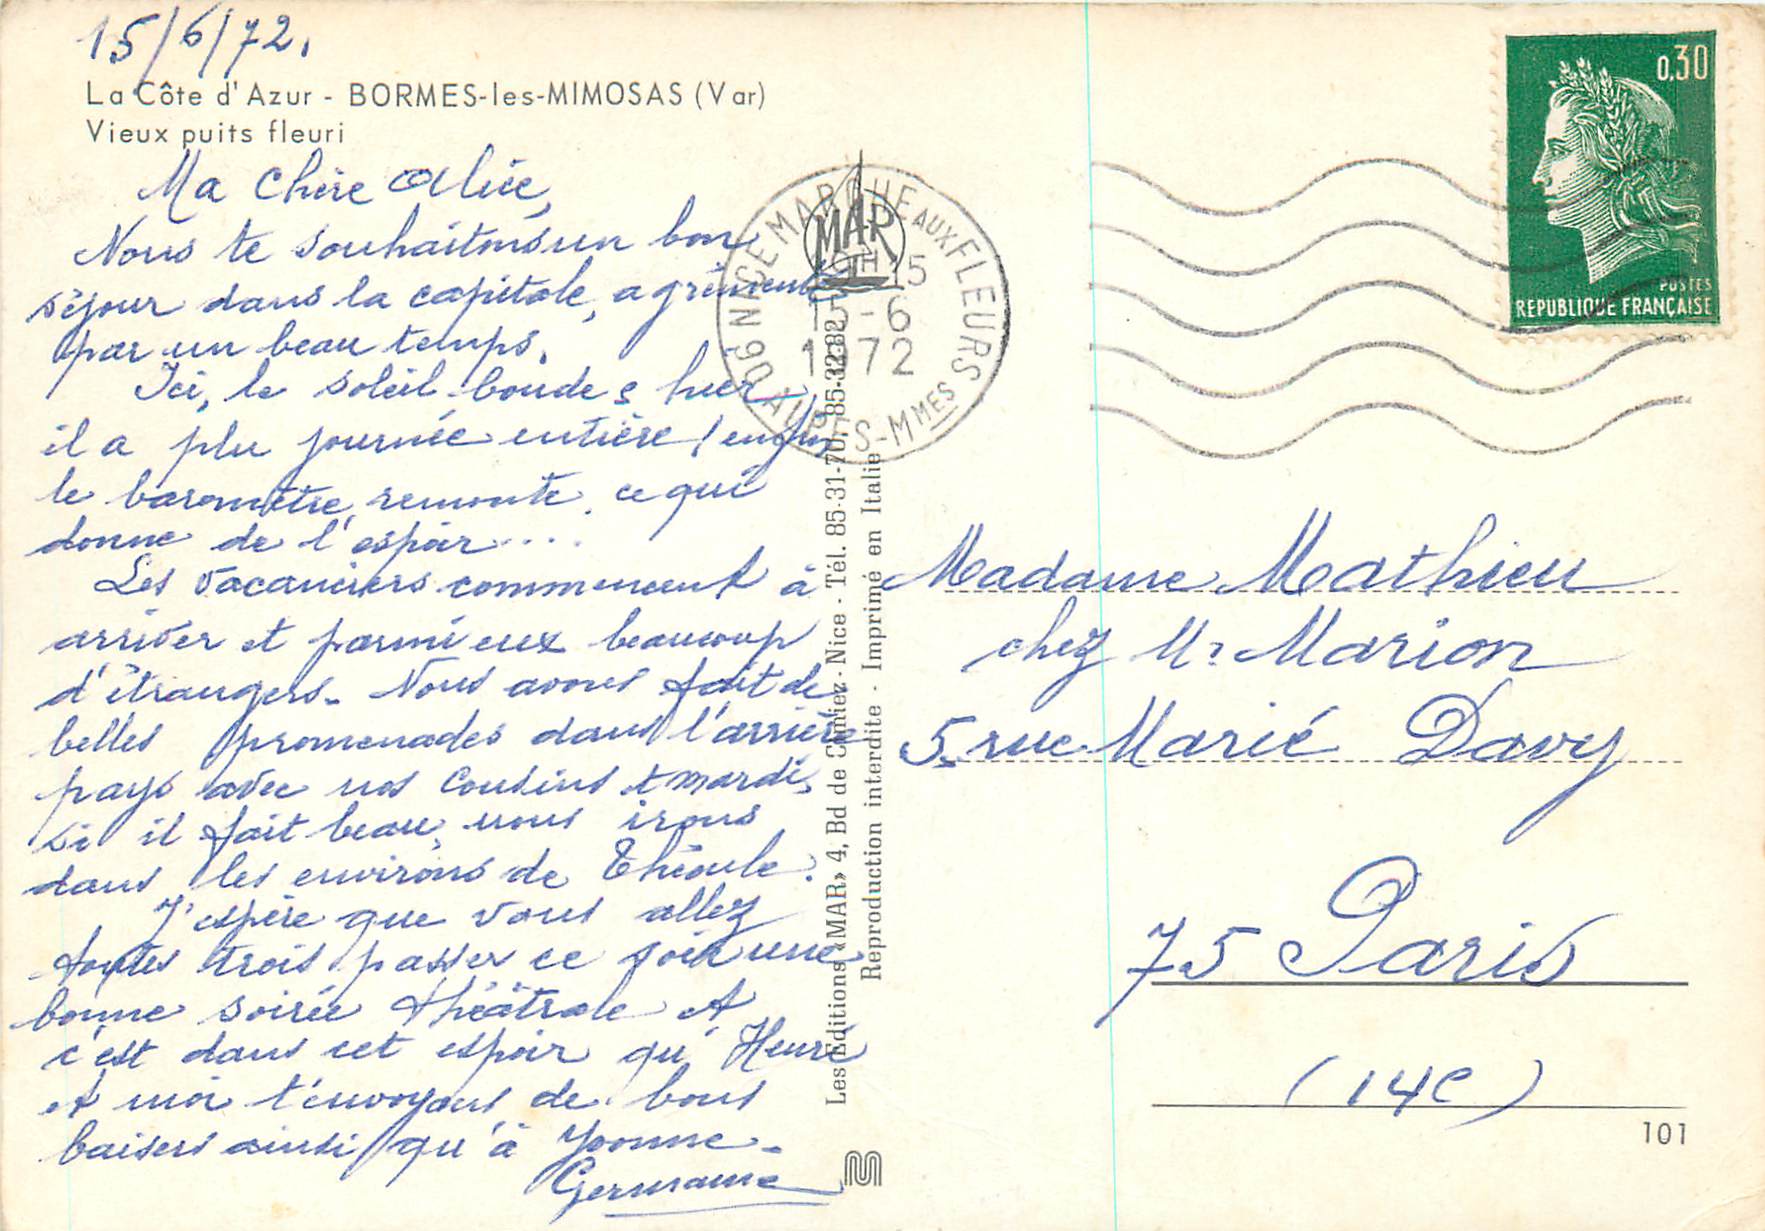 15/6/72.
La Côte d'Azur - BORMES-les-MIMOSAS (Var)
Vieux puits fleuri
Ma Chère Alice,
Nous te souhaitons un bon
séjour dans la capitale, agrémenté
par un beau temps.
Ici, le soleil boude & hier
il a plu journée entière / enfin
le baromètre remonte, ce qui
donne de l'espoir....
Les vacanciers commencent à
arriver et parmi eux beaucoup
d'étrangers. Nous avons fait de
belles promenades dans l'arrière
pays avec nos Cousins & mardi,
si il fait beau, nous irons
dans les environs de Théoule.
J'espère que vous allez
toutes trois passer ce soir une
bonne soirée théâtrale et
c'est dans cet espoir qu'
et moi t'envoyons de bons
baisers ainsi qu'à Yvonne.
Germaine
Les Editions «MAR» 4, Bd de Cimiez - Nice - Tél. 85-31-70, 85-32-82
Reproduction interdite - Imprimé en Italie
MAR
06 NICE MARCHE AUX FLEURS
H 15
15-6
1972
ALPES-MMES
0,30
POSTES
REPUBLIQUE FRANÇAISE
Madame Mathieu
chez Mr Marion
5. rue Marié Davy
75 Paris
(14e)
101